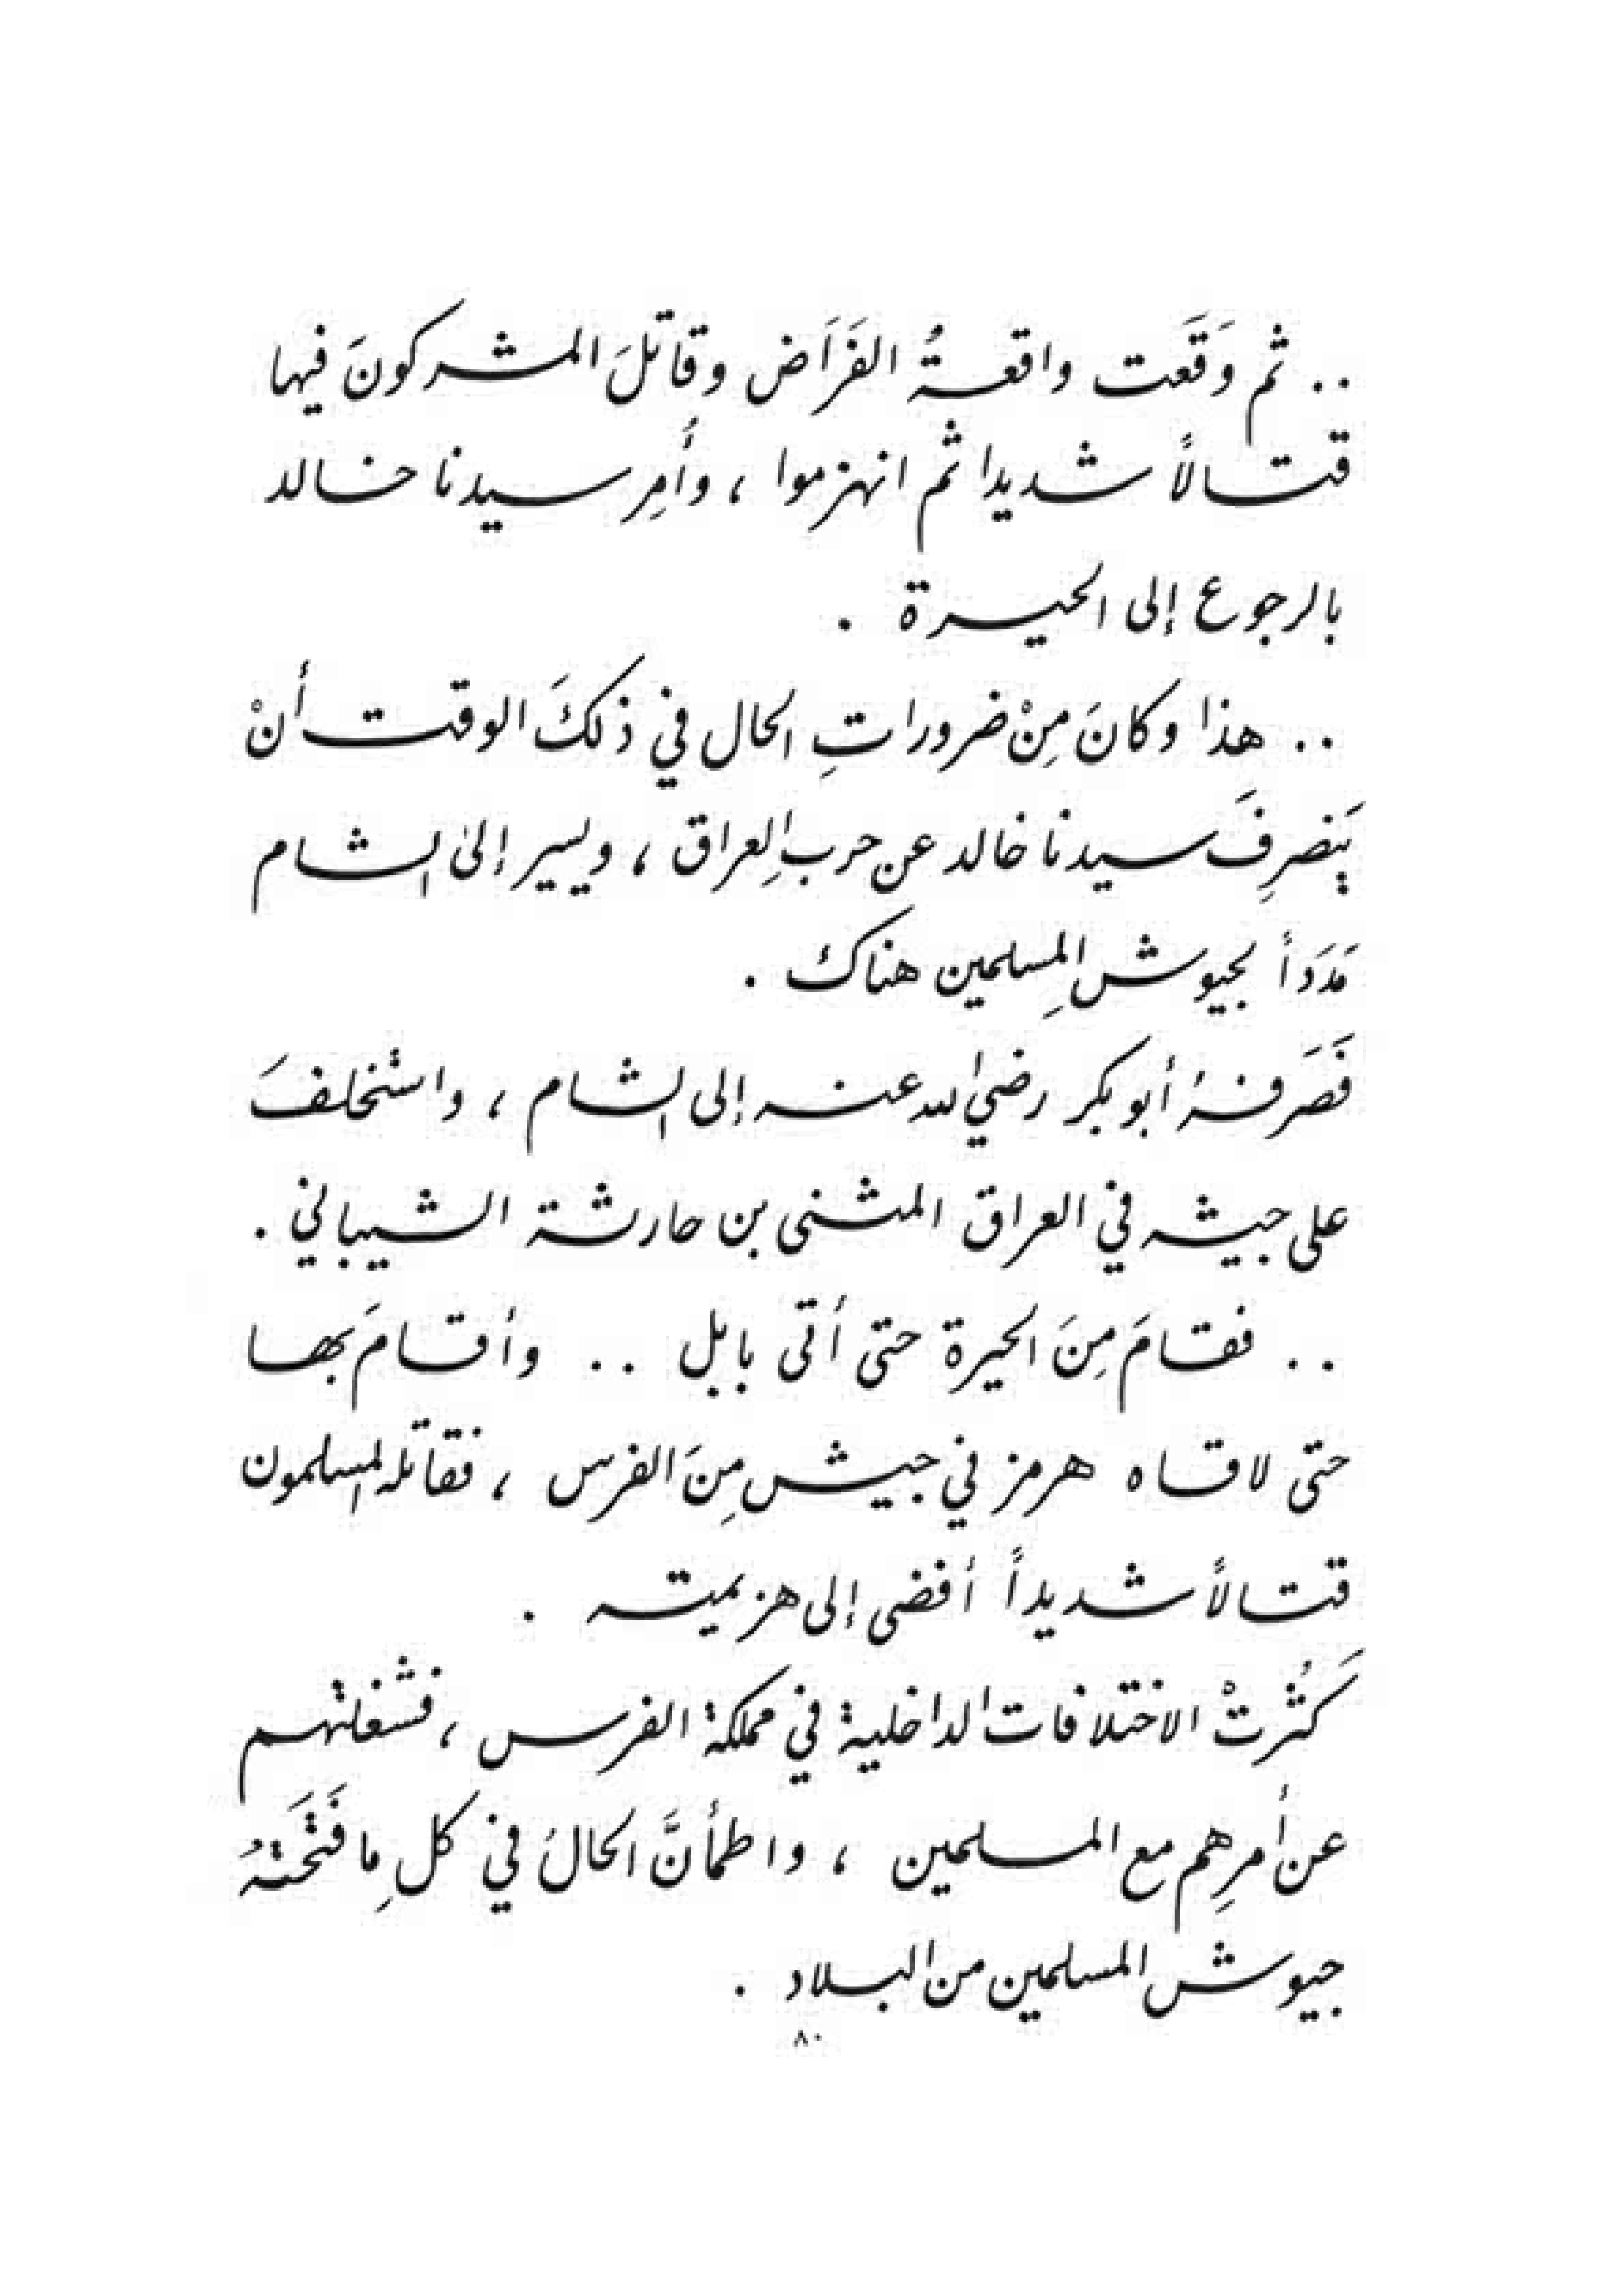 .. ثم وَقَعَت واقعةُ الفَرَاَض وقاتلَ المشركونَ فيها
قتالاً شديدا ثم انهزموا ، وأُمِر سيدنا خالد
بالرجوع إلى الحيرة .
.. هذا وكانَ مِنْ ضروراتِ الحال في ذلكَ الوقت أنْ
يَنصرِفَ سيدنا خالد عن حرب العراق ، ويسير إلى الشام
مَدَدَاً لجيوش المسلمين هناك .
فَصَرَفهُ أبو بكر رضي الله عنه إلى الشام ، واستخلفَ
على جيشه في العراق المثنى بن حارثة الشيباني .
.. فقامَ مِنَ الحيرة حتى أتى بابل .. وأقامَ بها
حتى لاقاه هرمز في جيش مِنَ الفرس ، فقاتله المسلمون
قتالاً شديداً أفضى إلى هزيمته .
كَثُرتْ الاختلافات الداخلية في مملكة الفرس ، فشغلتهم
عن أمرِهم مع المسلمين ، واطمأنَّ الحالُ في كلِ ما فَتَحَتهُ
جيوش المسلمين من البلاد .
٨٠